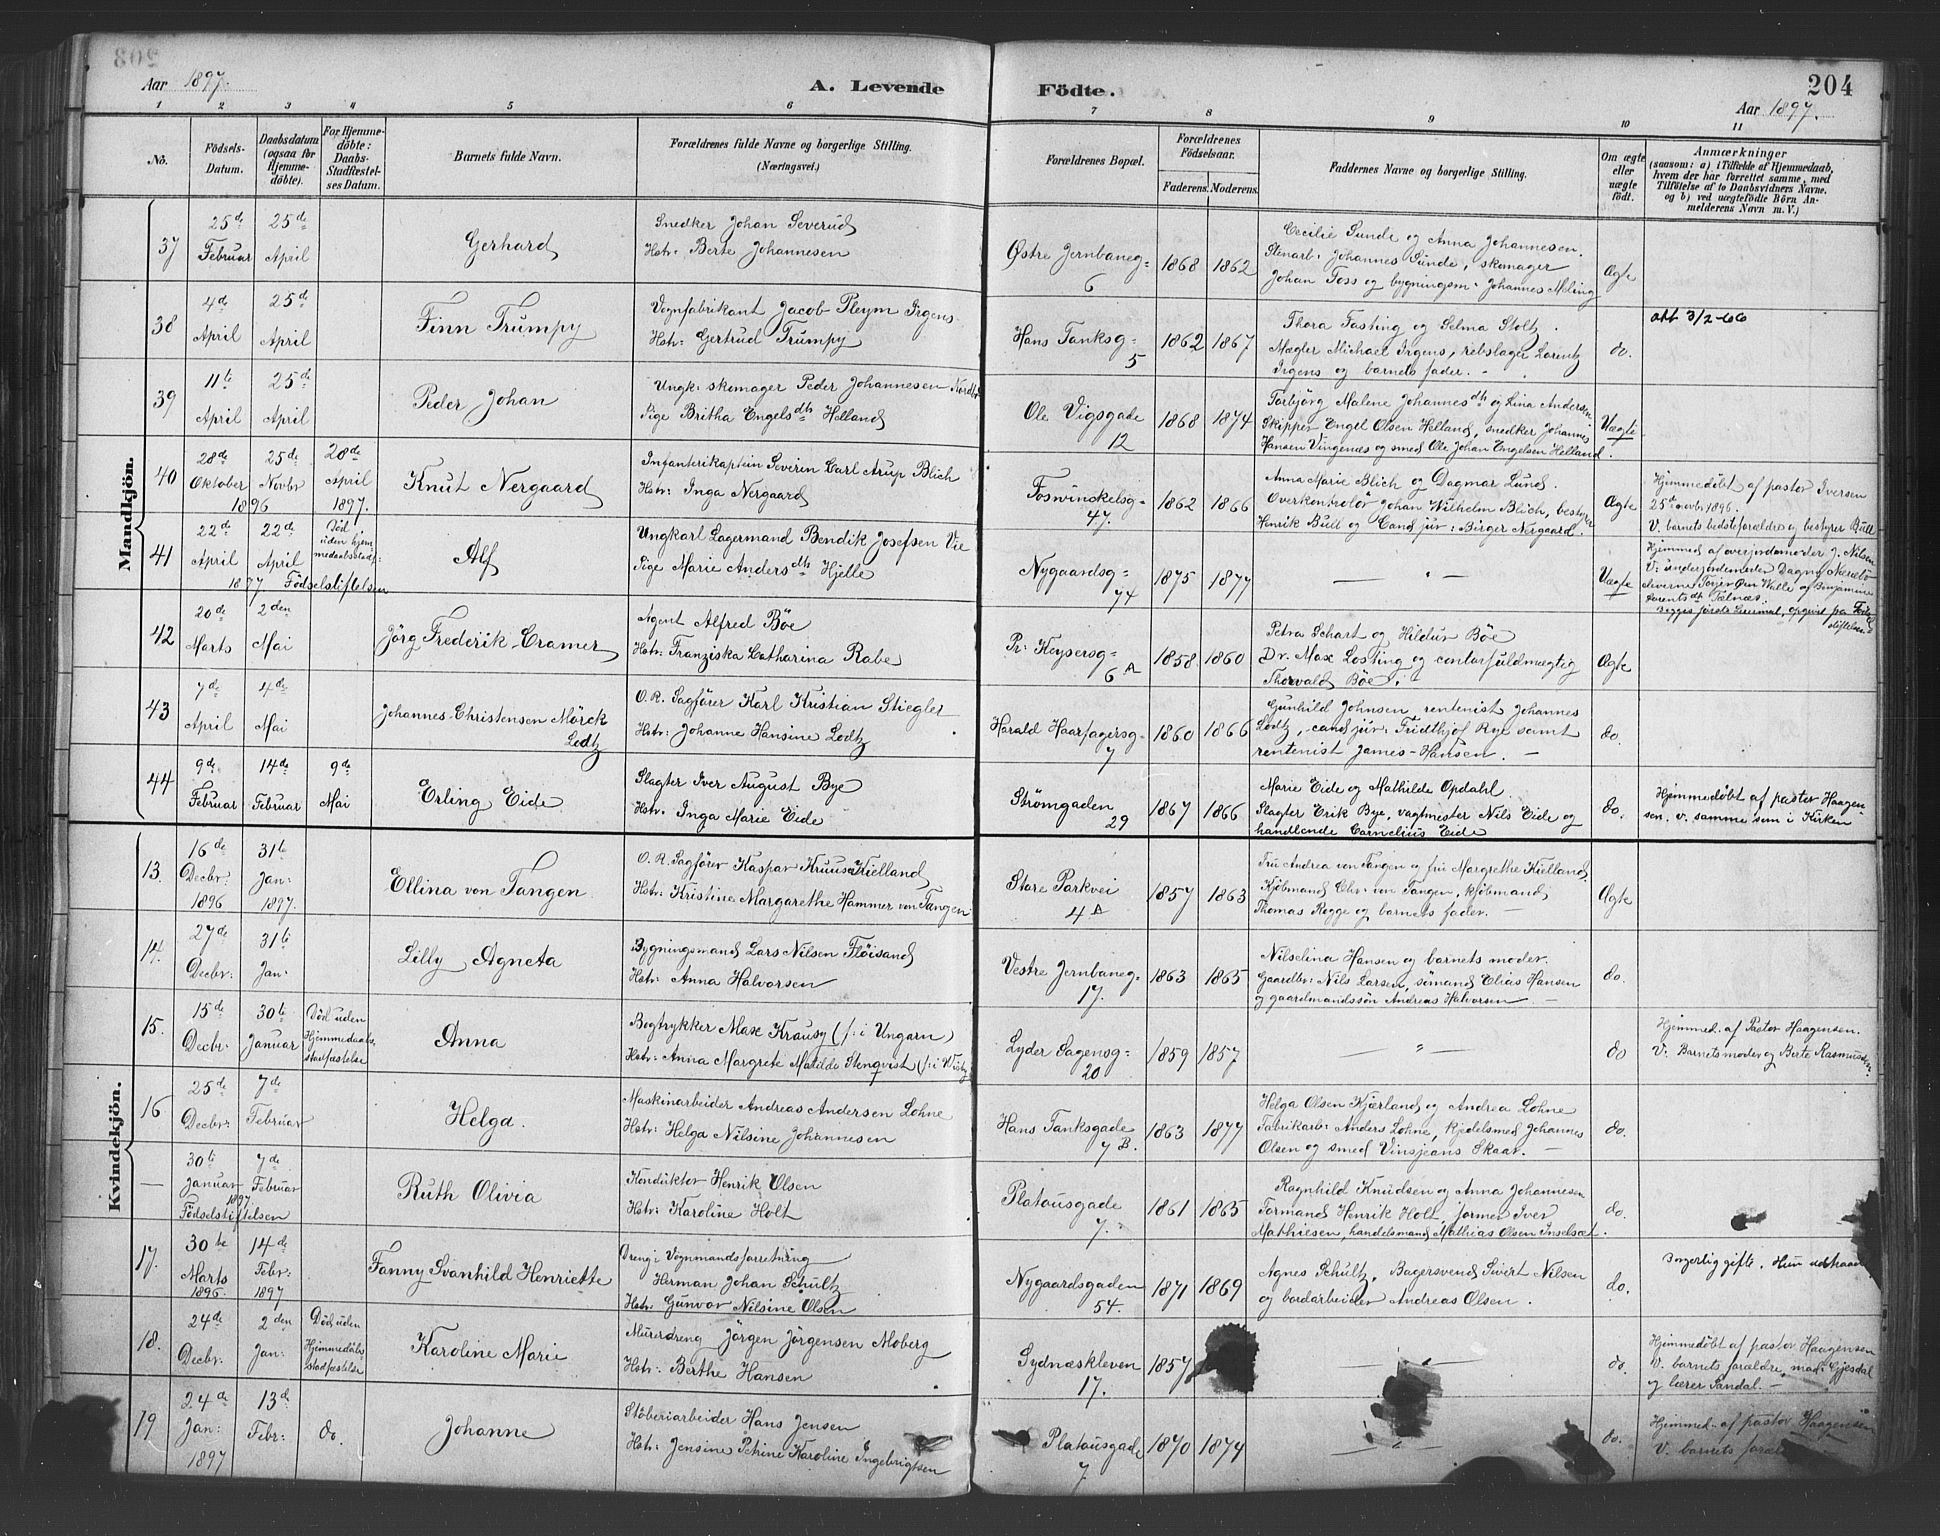 Aar 1897.
A. Levende
Födte.
204
Aar 1897.
1 2 3 4 5 6 7 8 9 10 11
No.
Födsels-
Datum.
Daabsdatum
(ogsaa for
Hjemme-
döbte).
For Hjemme-
döbte:
Daabs-
Stadfæstel-
ses Datum.
Barnets fulde Navn.
Forældrenes fulde Navne og borgerlige Stilling.
(Næringsvei.)
Forældrenes Bopæl.
Forældrenes
Födselsaar.
Faderens. Moderens.
Faddernes Navne og borgerlige Stilling.
Om ægte
eller
uægte
födt.
Anmærkninger
(saasom: a) i Tilfælde af Hjemmedaab,
hvem der har forrettet samme, med
Tilföielse af to Daabsvidners Navne.
og b) ved uægtefödte Börn An-
melderens Navn m. V.)
Mandkjön.
37
25de
Februar
25de
April
Gerhard
Snedker Johan Severud
Hstr: Berte Johannesen
Østre Jernbaneg-
6
1868 1862
Cecilie Sunde og Anna Johannesen.
Stenarb: Johannes Sunde, skomager
Johan Foss og bygningsm: Johannes Meling
Ægte
38
4de
April
25de
April
Finn Trumpy
Vognfabrikant Jacob Pleym Irgens
Hstr: Gertrud Trumpy
Hans Tanksg-
5
1862 1867
Thora Fasting og Selma Stoltz.
Mægler Michael Irgens, rebslager Lorentz
Irgens og barnets fader. -
do.
att 3/2-66
39
11te
April
25de
April
Peder Johan
Ungk: skomager Peder Johannesen
Pige Britha Engelsdtr Helland
Ole Vigsgade
12
1868 1874
Torbjörg Malene Johannesdtr og Lina Andersen
Skipper Engel Olsen Helland, snedker Johannes
Hansen Vingenæs og smed Ole Johan Engelsen Helland.
Uægte
40
28de
Oktober
1896
25de
Novbr
28de
April
1897.
Knut Nergaard
Infanterikaptein Severin Carl Arup Blich
Hstr: Inga Nergaard
Foswinckelsg-
47.
1862 1866
Anna Marie Blich og Dagmar Lund.
Overkontrolör Johan Wilhelm Blich, bestyrer
Henrik Bull og Cand jur: Birger Nergaard.
Ægte
Hjemmedöbt af pastor Iversen
25de novbr 1896.
V. barnets bedsteforældre og bestyrer Bull
41
22de
April
22de
April
1897 Födselstiftelsen
Död
uden hjem
medaabsstadf:
Alf
Ungkarl Lagermand Bendik Josefsen Vie
Pige Marie Andersdtr Hjelle
Nygaardsg-
74
1875 1877
— " —
Uægte
Hjemmed af overjordemoder J. Nilsen
V: underjordemoder Dagny
eleverne
Begges förste Leiermaal, opgivet paa Födsels
stiftelsen
42
20de
Marts
2den
Mai
Jörg Frederik Cramer
Agent Alfred Böe
Hstr: Franziska Catharina Rabe
Pr: Keysersg-
6 A
1858 1860
Petra Schart og Hildur Böe
Dr. Max Losting og contorfuldmægtig
Thorvald Böe.
Ægte
43
7de
April
4de
Mai
Johannes Christensen Mörck
Lodtz
O. R. Sagförer Karl Kristian Stiegler
Hstr: Johanne Hansine Lodtz
Harald Haarfagersg-
7
1860 1866
Gunhild Johnsen, rentenist Johannes
Lodtz, cand jur: Fridthjof Rye samt
rentenist James Hansen. —
do.
44
9de
Februar
14de
Februar
9de
Mai
Erling Eide
Slagter Iver August Bye
Hstr: Inga Marie Eide
Strömgaden
29
1867 1866
Marie Eide og Mathilde Opdahl.
Slagter Erik Bye, vagtmester Nils Eide og
handlende Cornelius Eide
do.
Hjemmedöbt af pastor Haagen-
sen. V. samme som i Kirken
Kvindekjön.
13.
16de
Decbr:
1896
31te
Jan:
1897.
Ellina von Tangen.
O. R. Sagförer Kaspar Kruuse Kielland
Hstr: Kristine Margarethe Hammer von Tangen
Store Parkvei
4 A
1857 1863
Fru Andrea von Tangen og fru Margrethe Kielland.
Kjöbmand Chr: von Tangen, kjöbmand
Thomas Rogge og barnets fader. —
Ægte
14.
27de
Decbr:
31te
Jan:
Lilly Agneta
Bygningsmand Lars Nilsen Flöisand
Hstr: Anna Halvorsen
Vestre Jernbaneg-
17.
1863 1865
Nilselina Hansen og barnets moder.
Gaardbr: Nils Larsen, sömand Elias Hansen
og gaardmandssön Andreas Halvorsen —
do.
15.
15de
Decbr:
30te
Januar
Död uden
Hjemmedaabs
stadfæstelse
Anna
Bogtrykker Max Krausz (f: i Ungarn)
Hstr: Anna Margrete Matilde Stenqvist (f: i Wisby
Lyder Sagensg-
20
1859 1857
— " —
do
Hjemmed. af Pastor Haagensen.
V. Barnets moder og Berte Rasmussen.
16
25de
Decbr:
7de
Februar
Helga.
Maskinarbeider Andreas Andersen Lohne
Hstr: Helga Nilsine Johannesen
Hans Tanksgade
7 B.
1863 1877
Helga Olsen Kjærland og Andrea Lohne
Fabrikarb: Anders Lohne, kjedelsmed Johannes
Olsen og smed Vinsjeans Skaar. —
do.
—
30te
Januar
1897
Födselstiftelsen
7de
Februar
Ruth Olivia
Konduktör Henrik Olsen
Hstr: Karoline Holt
Platousgade
7.
1861 1865
Ragnhild Knudsen og Anna Johannesen
Formand Henrik Holt, former Iver
Mathiesen, handelsmand Mathias Olsen Inselsæt.
do.
17.
30te
Marts
1896.
14de
Febr:
1897
Fanny Svanhild Henriette
Dreng i Vognmandsforretning
Herman Johan Schultz
Hstr: Gunvor Nilsine Olsen
Nygaardsgaden
54.
1871 1869
Agnes Schultz, Bagersvend Sivert Nilsen
og bordarbeider Andreas Olsen.
do.
Borgerlig gifte. Hun
18.
24de
Decbr:
2den
Jan:
Död uden
Hjemmedöbs
stadfæstelse
Karoline Marie
Murerdreng Jörgen Jörgensen Moberg
Hstr: Berthe Hansen
Sydnæskleven
17.
1857
"
do.
Hjemmedöbt af pastor Haagensen
V. barnets forældre, mad: Gjesdal
og lærer Sandal. —
19
24de
Jan:
1897
13de
Febr:
do.
Johanne
Stöberiarbeider Hans Jensen
Hstr: Jensine Petrine Karoline Ingebrigtsen
Platousgade
7
1870 1874
"
do.
Hjemmed. af pastor Haagensen
V. barnets